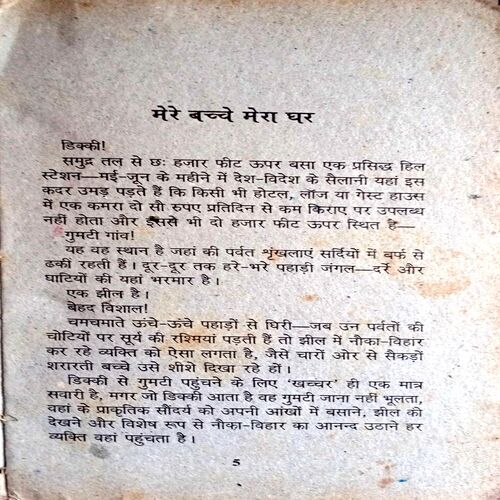 मेरे बच्चे मेरा घर
डिक्की!
समुद्र तल से छः हजार फीट ऊपर बसा एक प्रसिद्ध हिल
स्टेशन—मई-जून के महीने में देश-विदेश के सैलानी यहां इस
कदर उमड़ पड़ते हैं कि किसी भी होटल, लॉज या गेस्ट हाउस
में एक कमरा दो सौ रुपए प्रतिदिन से कम किराए पर उपलब्ध
नहीं होता और इससे भी दो हजार फीट ऊपर स्थित है—
गुमटी गांव!
यह वह स्थान है जहां की पर्वत शृंखलाएं सर्दियों में बर्फ से
ढकी रहती हैं। दूर-दूर तक हरे-भरे पहाड़ी जंगल—दर्रे और
घाटियों की यहां भरमार है।
एक झील है।
बेहद विशाल!
चमचमाते ऊंचे-ऊंचे पहाड़ों से घिरी—जब उन पर्वतों की
चोटियों पर सूर्य की रश्मियां पड़ती हैं तो झील में नौका-विहार
कर रहे व्यक्ति को ऐसा लगता है, जैसे चारों ओर से सैकड़ों
शरारती बच्चे उसे शीशे दिखा रहे हों।
डिक्की से गुमटी पहुंचने के लिए 'खच्चर' ही एक मात्र
सवारी है, मगर जो डिक्की आता है वह गुमटी जाना नहीं भूलता,
वहां के प्राकृतिक सौंदर्य को अपनी आंखों में बसाने, झील की
देखने और विशेष रूप से नौका-विहार का आनन्द उठाने हर
व्यक्ति वहां पहुंचता है।
5